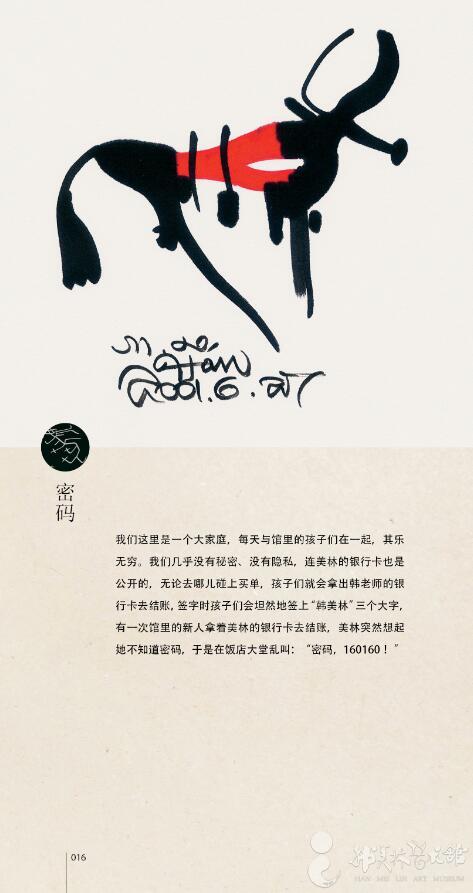 2001.6.
密码
我们这里是一个大家庭，每天与馆里的孩子们在一起，其乐
无穷。我们几乎没有秘密、没有隐私，连美林的银行卡也是
公开的，无论去哪儿碰上买单，孩子们就会拿出韩老师的银
行卡去结账，签字时孩子们会坦然地签上“韩美林”三个大字，
有一次馆里的新人拿着美林的银行卡去结账，美林突然想起
她不知道密码，于是在饭店大堂乱叫：“密码，160160！”
016
韩美林艺术馆
HAN MEI LIN ART MUSEUM